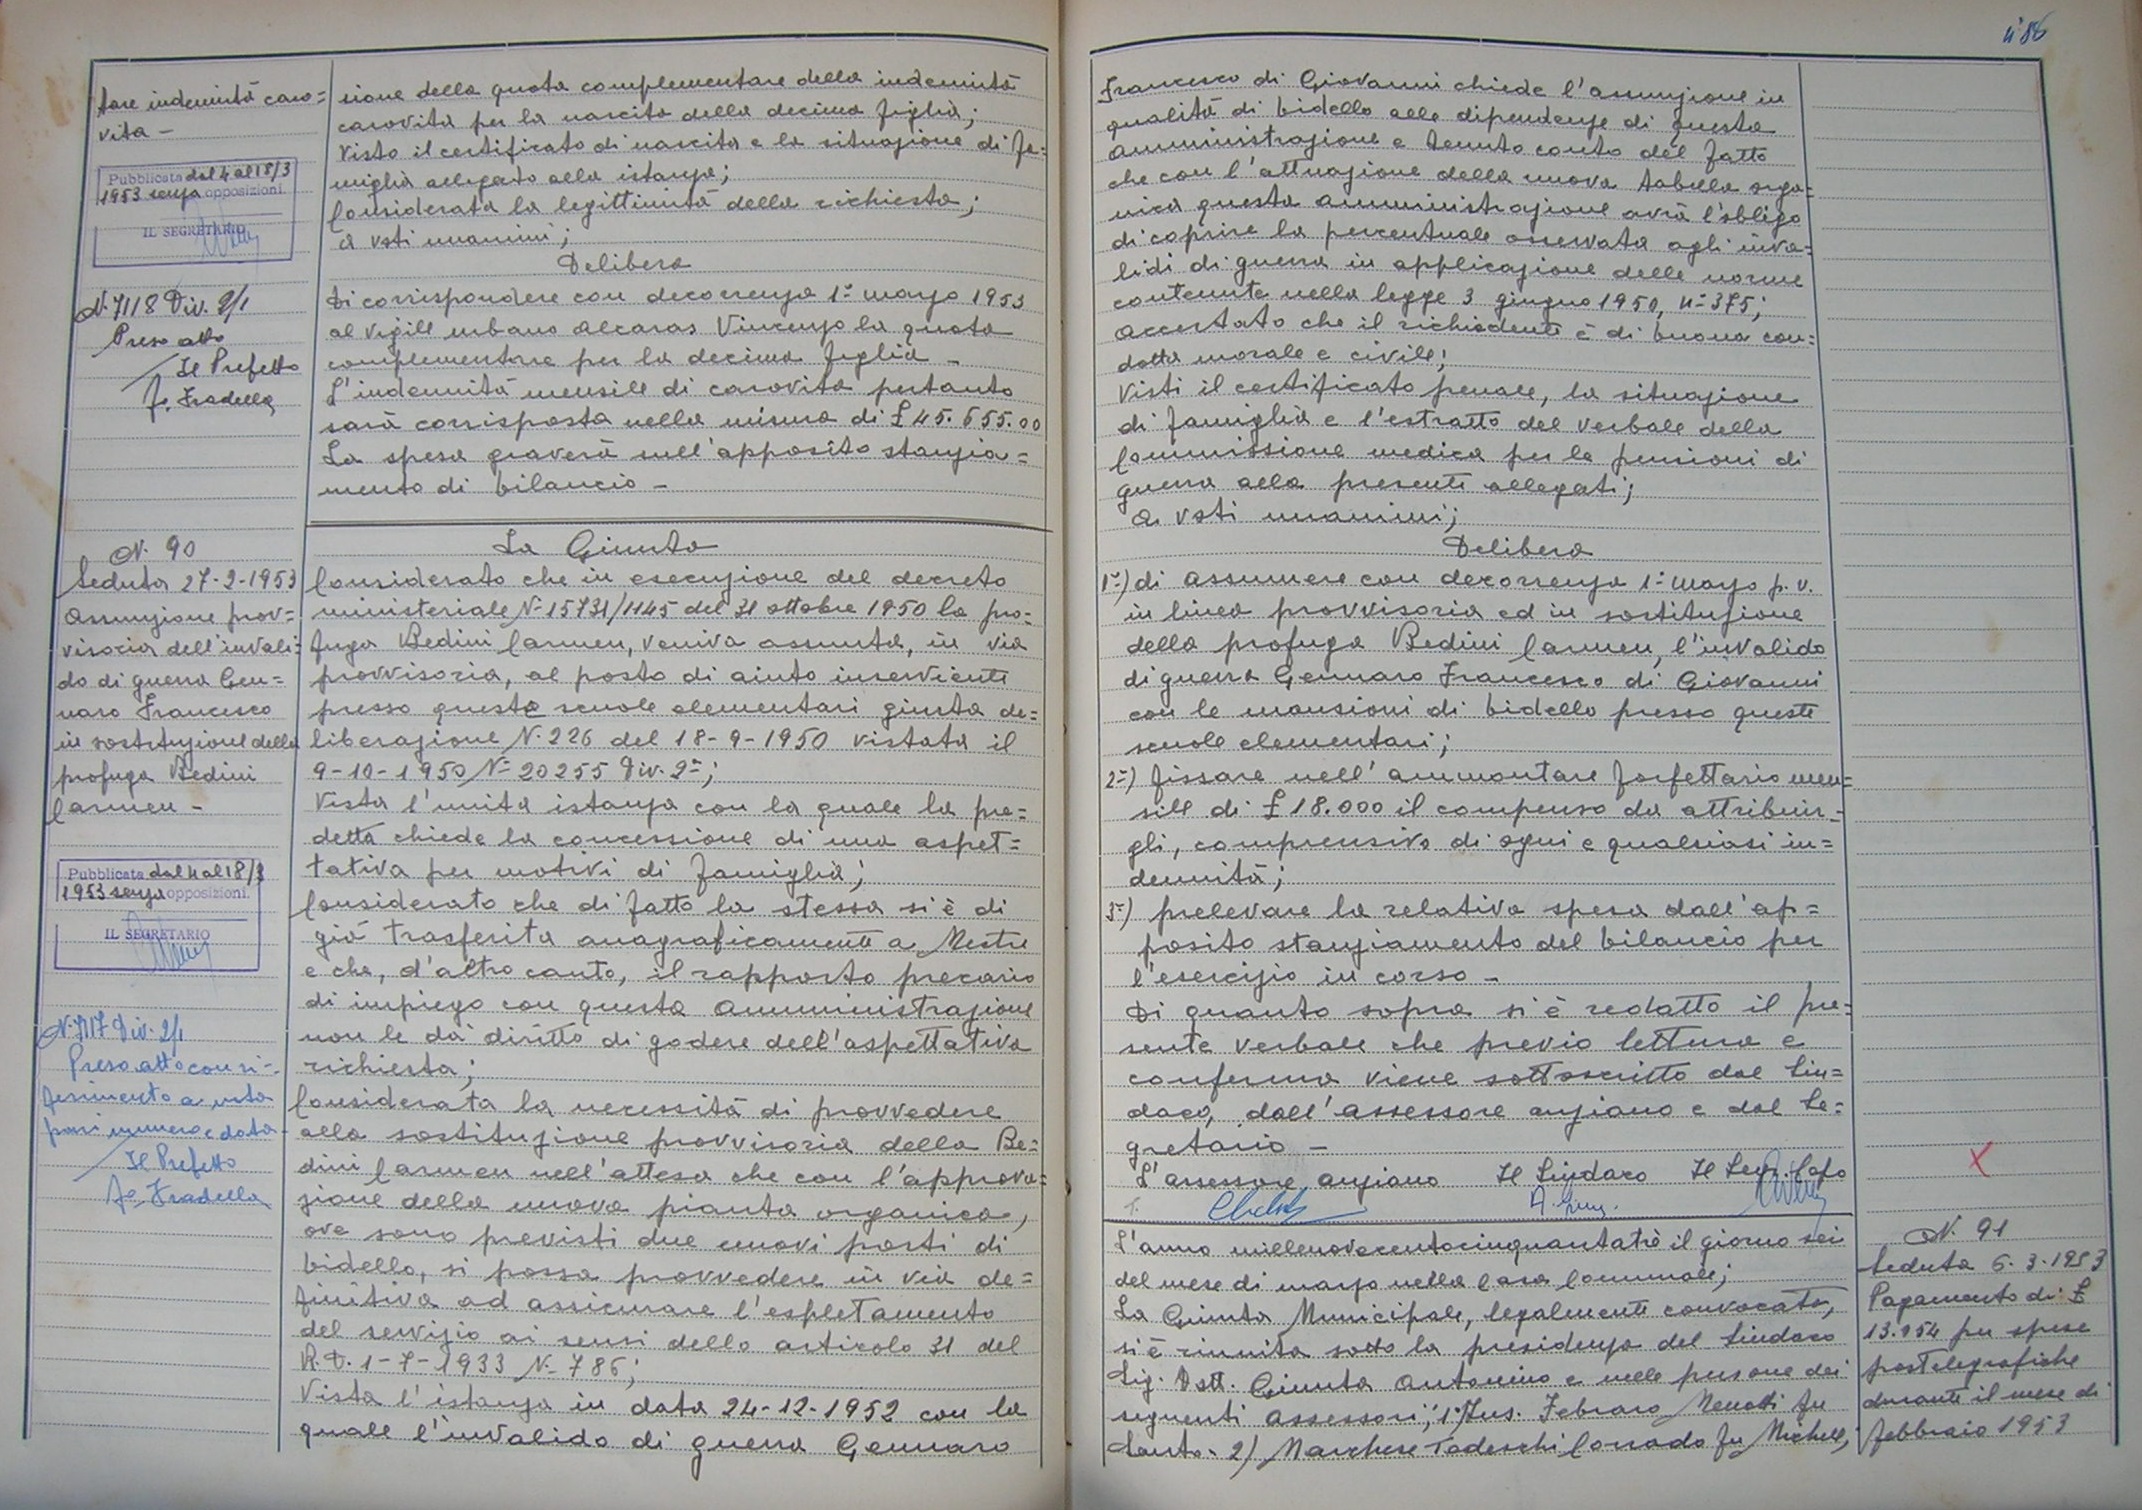 tare indennità caro=
vita -
Pubblicata dal 4 al 18/3
1953 senza opposizioni.
IL SEGRETARIO
N. 7118 Div. 2/1
Preso atto
Il Prefetto
fo Fradella
N. 90
Seduta 27-2-1953
Assunzione prov=
visoria dell'invali=
do di guerra Gen=
naro Francesco
in sostituzione della
profuga Bedini
Carmen -
Pubblicata dal 4 al 18/3
1953 senza opposizioni.
IL SEGRETARIO
N. 7117 Div. 2/1
Preso atto con ri=
ferimento a nota
pari numero e data
Il Prefetto
fo Fradella
sione della quota complementare della indennità
carovita per la nascita della decima figlia;
Visto il certificato di nascita e la situazione di fa=
miglia allegato alla istanza;
Considerata la legittimità della richiesta;
a voti unanimi;
Delibera
Di corrispondere con decorrenza 1° marzo 1953
al vigile urbano Alcaras Vincenzo la quota
complementare per la decima figlia -
L'indennità mensile di carovita pertanto
sarà corrisposta nella misura di £ 45.655.00
La spesa graverà sull'apposito stanzia=
mento di bilancio -
La Giunta
Considerato che in esecuzione del decreto
ministeriale N° 15731/1145 del 31 ottobre 1950 la pro=
fuga Bedini Carmen, veniva assunta, in via
provvisoria, al posto di aiuto inserviente
presso queste scuole elementari giunta de=
liberazione N. 226 del 18-9-1950 vistata il
9-10-1950 N° 20255 Div. 2ª;
Vista l'unita istanza con la quale la pre=
detta chiede la concessione di una aspet=
tativa per motivi di famiglia;
Considerato che di fatto la stessa si è di
già trasferita anagraficamente a Mestre
e che, d'altro canto, il rapporto precario
di impiego con questa Amministrazione
non le dà diritto di godere dell'aspettativa
richiesta;
Considerata la necessità di provvedere
alla sostituzione provvisoria della Be=
dini Carmen nell'attesa che con l'approva=
zione della nuova pianta organica,
ove sono previsti due nuovi posti di
bidello, si possa provvedere in via de=
finitiva ad assicurare l'espletamento
del servizio ai sensi dello articolo 31 del
R.D. 1-7-1933 N. 786;
Vista l'istanza in data 24-12-1952 con la
quale l'invalido di guerra Gennaro
Francesco di Giovanni chiede l'assunzione in
qualità di bidello alle dipendenze di questa
Amministrazione e tenuto conto del fatto
che con l'attuazione della nuova tabella orga=
nica questa amministrazione avrà l'obbligo
di coprire la percentuale osservata agli inva=
lidi di guerra in applicazione delle norme
contenute nella legge 3 giugno 1950, n° 375;
Accertato che il richiedente è di buona con=
dotta morale e civile;
Visti il certificato penale, la situazione
di famiglia e l'estratto del verbale della
Commissione medica per le pensioni di
guerra alla presente allegati;
a voti unanimi;
Delibera
1°) di assumere con decorrenza 1° marzo p.v.
in linea provvisoria ed in sostituzione
della profuga Bedini Carmen, l'invalido
di guerra Gennaro Francesco di Giovanni
con le mansioni di bidello presso queste
scuole elementari;
2°) fissare nell'ammontare forfettario men=
sile di £ 18.000 il compenso da attribuir=
gli, comprensivo di ogni e qualsiasi in=
dennità;
3°) prelevare la relativa spesa dall'ap=
posito stanziamento del bilancio per
l'esercizio in corso -
Di quanto sopra si è redatto il pre=
sente verbale che previo lettura e
conferma viene sottoscritto dal Sin=
daco, dall'assessore anziano e dal Se=
gretario -
L'assessore anziano Il Sindaco Il Segr. Capo
L'anno millenovecentocinquantatrè il giorno sei
del mese di marzo nella Casa Comunale;
La Giunta Municipale, legalmente convocata,
si è riunita sotto la presidenza del Sindaco
Sig. Dott. Giunta Antonino e nelle persone dei
seguenti Assessori; 1°) Ins. Febraro Menotti fu
Santo - 2) Marchese Tedeschi Corrado fu Michele,
N. 91
Seduta 6.3.1953
Pagamento di £
13.954 per spese
postelegrafiche
durante il mese di
febbraio 1953